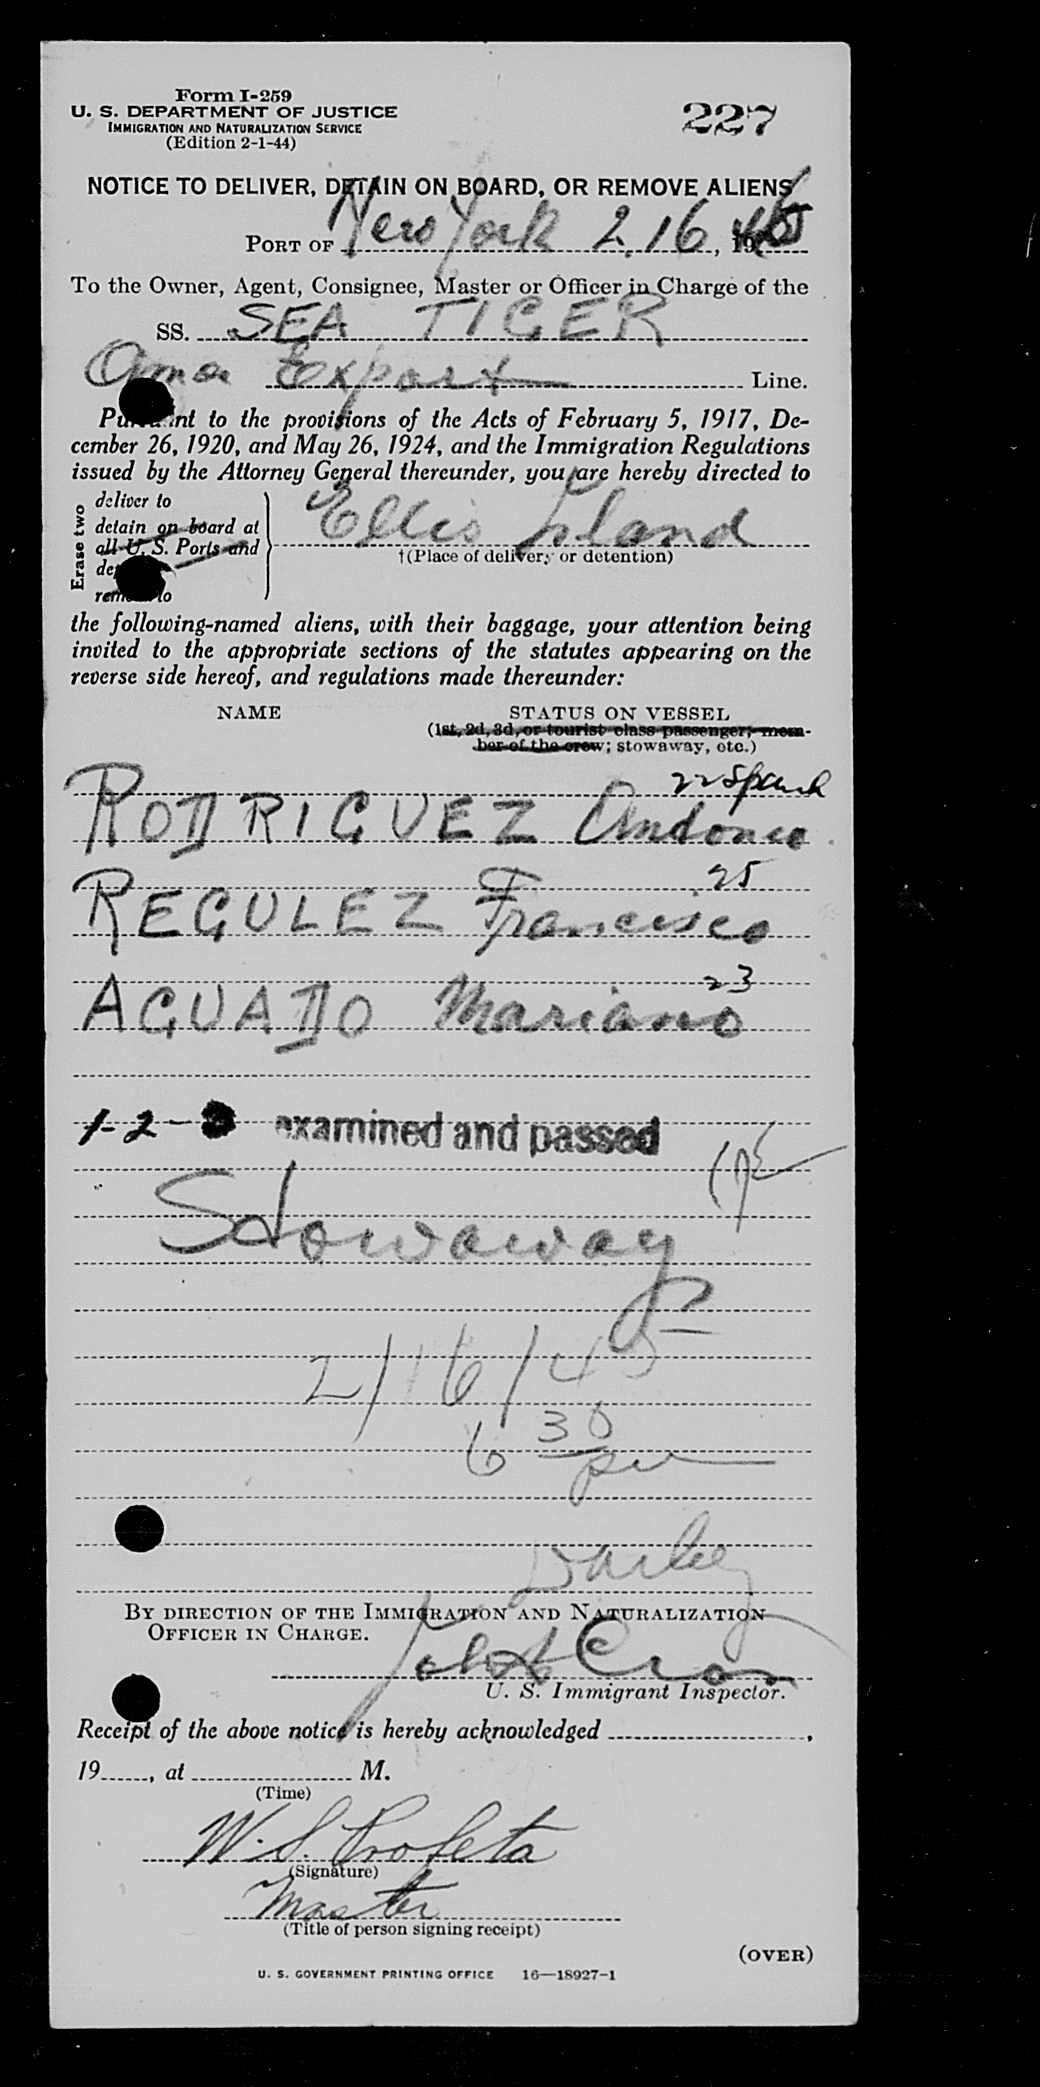 Form I-259
U. S. DEPARTMENT OF JUSTICE
IMMIGRATION AND NATURALIZATION SERVICE
(Edition 2-1-44)
227
NOTICE TO DELIVER, DETAIN ON BOARD, OR REMOVE ALIENS
PORT OF New York 2.16, 19
To the Owner, Agent, Consignee, Master or Officer in Charge of the
SS. SEA TIGER
Amer Export Line.
Pursuant to the provisions of the Acts of February 5, 1917, De-
cember 26, 1920, and May 26, 1924, and the Immigration Regulations
issued by the Attorney General thereunder, you are hereby directed to
Erase two
deliver to
detain on board at
all U. S. Ports and
remove to
Ellis Island
†(Place of delivery or detention)
the following-named aliens, with their baggage, your attention being
invited to the appropriate sections of the statutes appearing on the
reverse side hereof, and regulations made thereunder:
NAME STATUS ON VESSEL
(1st, 2d, 3d, or tourist class passenger; mem-
ber of the crew; stowaway, etc.)
22 Spanish
RODRIGUEZ Andonio
25
REGULEZ Francisco
23
AGUADO Mariano
1-2- examined and passed
Stowaways
2/16/45
6 30
pm
Darley
BY DIRECTION OF THE IMMIGRATION AND NATURALIZATION
OFFICER IN CHARGE.
U. S. Immigrant Inspector.
Receipt of the above notice is hereby acknowledged ,
19 , at M.
(Time)
W. S. Profeta
(Signature)
Master
(Title of person signing receipt)
(OVER)
U. S. GOVERNMENT PRINTING OFFICE 16—18927-1